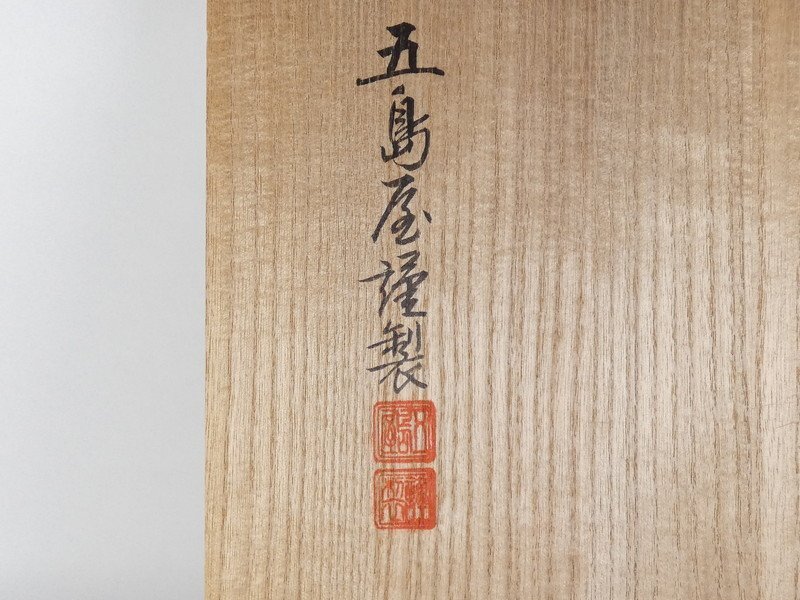 五島屋謹製